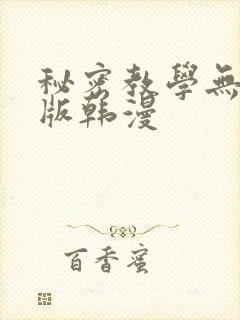 秘密教學無
版韩漫
百香蜜